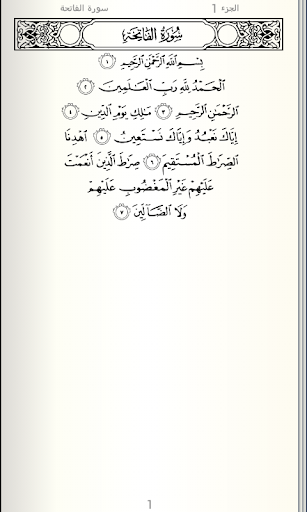 الجزء 1 سورة الفاتحة
سُورَةُ الفَاتِحَةِ
بِسْمِ ٱللَّهِ ٱلرَّحْمَٰنِ ٱلرَّحِيمِ ١
ٱلْحَمْدُ لِلَّهِ رَبِّ ٱلْعَٰلَمِينَ ٢
ٱلرَّحْمَٰنِ ٱلرَّحِيمِ ٣ مَٰلِكِ يَوْمِ ٱلدِّينِ ٤
إِيَّاكَ نَعْبُدُ وَإِيَّاكَ نَسْتَعِينُ ٥ ٱهْدِنَا
ٱلصِّرَٰطَ ٱلْمُسْتَقِيمَ ٦ صِرَٰطَ ٱلَّذِينَ أَنْعَمْتَ
عَلَيْهِمْ غَيْرِ ٱلْمَغْضُوبِ عَلَيْهِمْ
وَلَا ٱلضَّآلِّينَ ٧
1